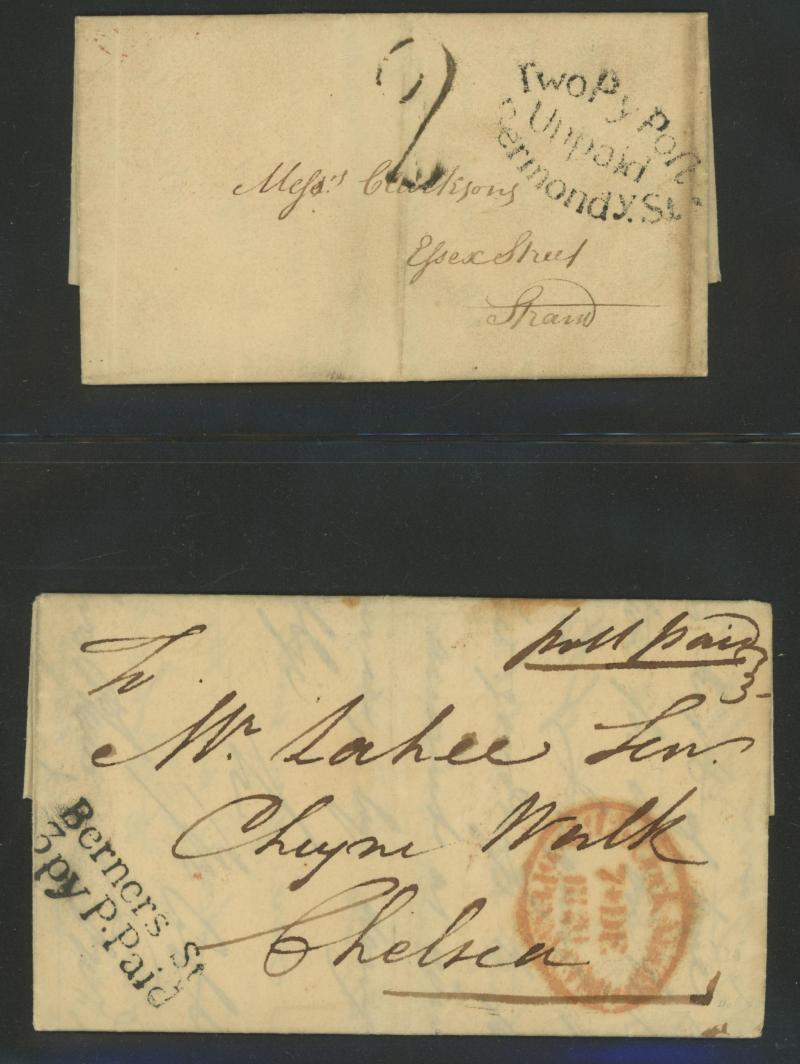 2
TwoPy Post
Unpaid
Bermondy.St
Messrs Clarksons
Essex Street
Strand
post paid
3
To
Mr. Lahee Senr.
Cheyne Walk
Chelsea
Berners St
3py P.Paid
7·DE